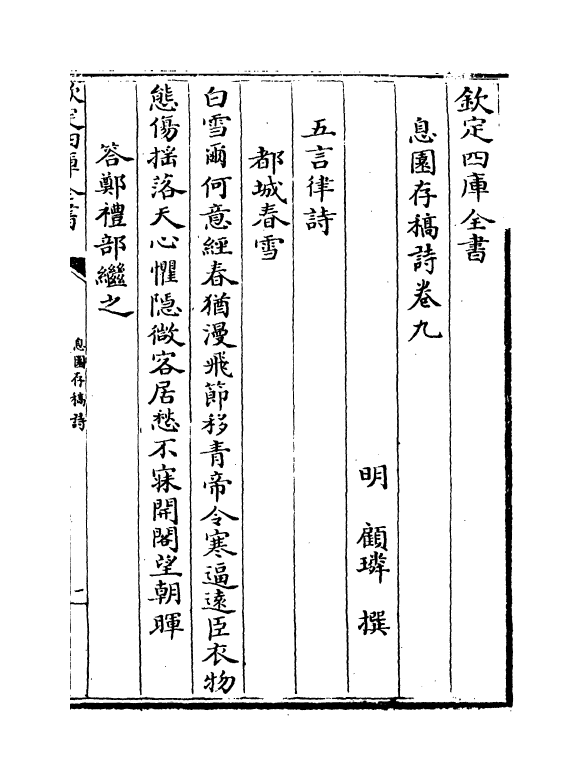 欽定四庫全書
息園存稿詩卷九
明 顧璘 撰
五言律詩
都城春雪
白雪爾何意經春猶漫飛節移青帝令寒逼遠臣衣物
態傷揺落天心懼隠微客居愁不寐開閣望朝暉
答鄭禮部繼之
欽定四庫全書
息園存稿詩
一